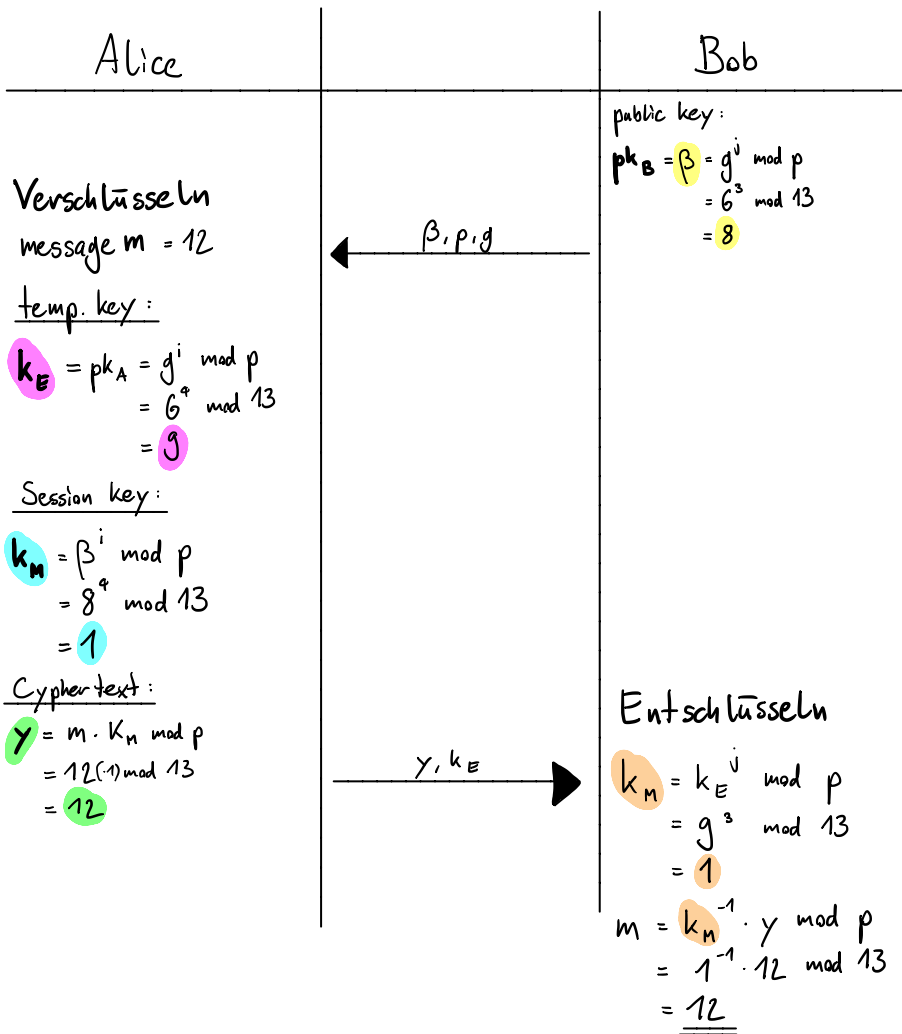 Alice
Verschlüsseln
message m = 12
temp. key :
k_E = pk_A = g^i mod p
= 6^4 mod 13
= 9
Session key :
k_M = β^i mod p
= 8^4 mod 13
= 1
Cyphertext :
y = m · K_M mod p
= 12(·1) mod 13
= 12
β, p, g
y, k_E
Bob
public key :
pk_B = β = g^j mod p
= 6^3 mod 13
= 8
Entschlüsseln
k_M = k_E^j mod p
= 9^3 mod 13
= 1
m = k_M^-1 · y mod p
= 1^-1 · 12 mod 13
= 12